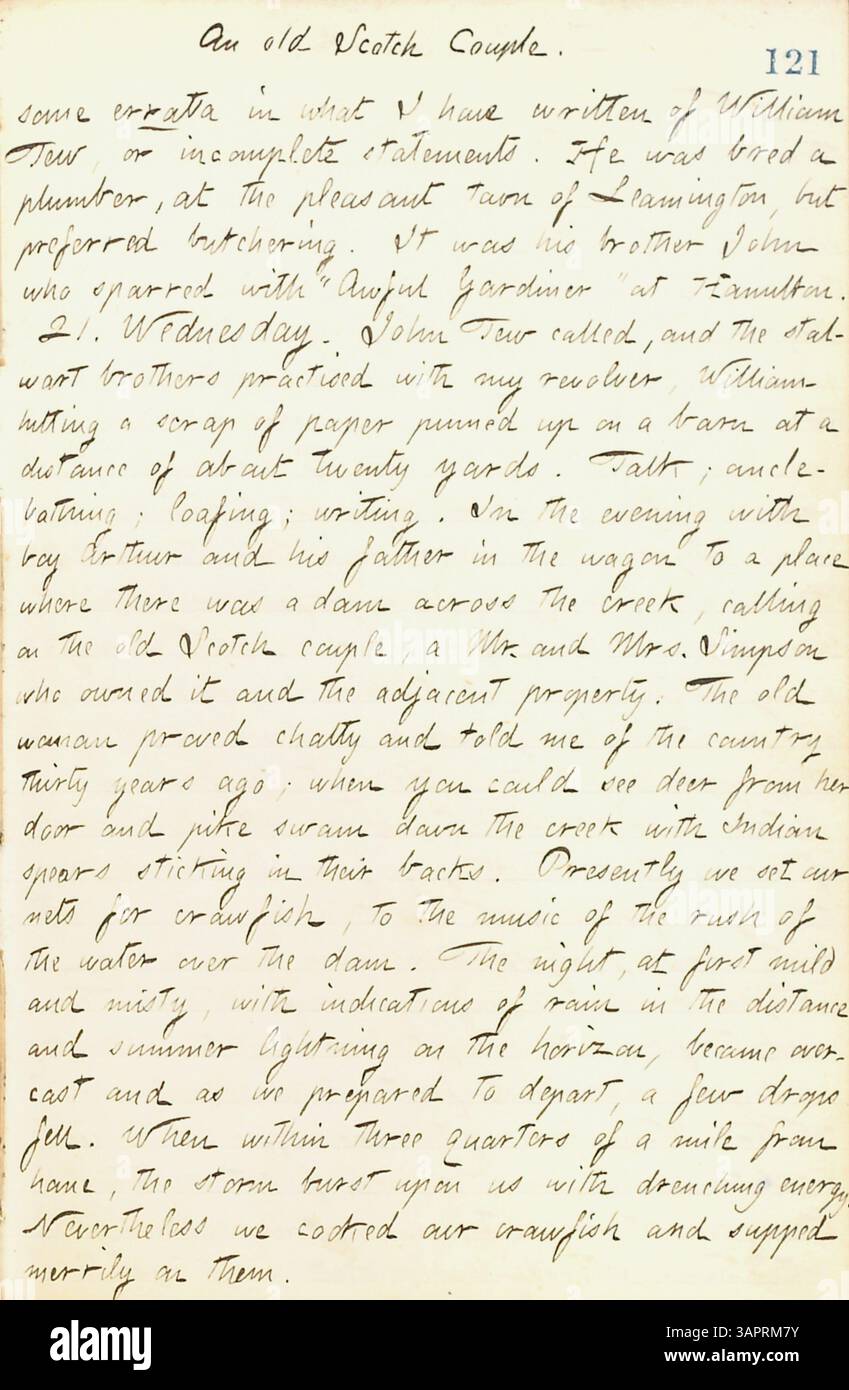 An old Scotch Couple.
121
some errata in what I have written of William
Tew, or incomplete statements. He was bred a
plumber, at the pleasant town of Leamington, but
preferred butchering. It was his brother John
who sparred with "Awful Gardiner" at Hamilton.
21. Wednesday. John Tew called, and the stal-
wart brothers practised with my revolver, William
hitting a scrap of paper pinned up on a barn at a
distance of about twenty yards. Talk; ancle-
bathing; loafing; writing. In the evening with
boy Arthur and his father in the wagon to a place
where there was a dam across the creek, calling
on the old Scotch couple, a Mr. and Mrs. Simpson
who owned it and the adjacent property. The old
woman proved chatty and told me of the country
thirty years ago; when you could see deer from her
door and pike swam down the creek with Indian
spears sticking in their backs. Presently we set our
nets for crawfish, to the music of the rush of
the water over the dam. The night, at first mild
and misty, with indications of rain in the distance
and summer lightning on the horizon, became over-
cast and as we prepared to depart, a few drops
fell. When within three quarters of a mile from
home, the storm burst upon us with drenching energy.
Nevertheless we cooked our crawfish and supped
merrily on them.
alamy
Image ID: 3APRM7Y
www.alamy.com